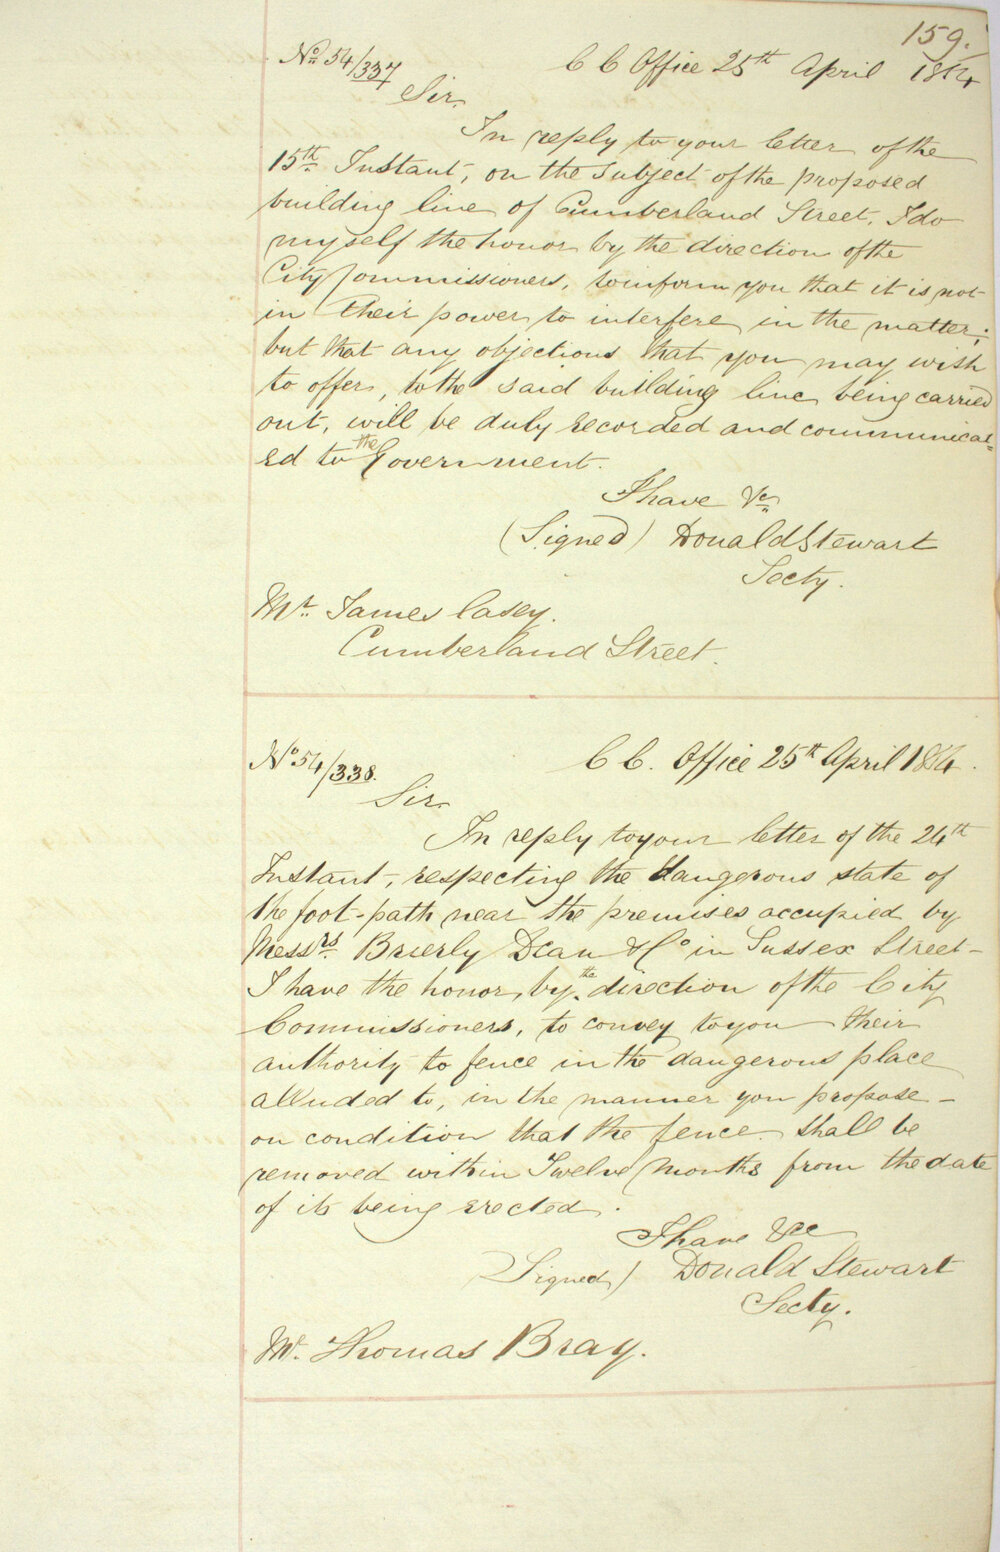 159.
No. 54/337
C C Office 25th April 1854
Sir
In reply to your letter of the
15th Instant, on the subject of the proposed
building line of Cumberland Street. I do
myself the honor by the direction of the
City Commissioners, to inform you that it is not
in their power to interfere in the matter;
but that any objections that you may wish
to offer, to the said building line being carried
out, will be duly recorded and communicat=
ed to the Government.
I have &c
(Signed) Donald Stewart
Secty.
Mr. James Casey.
Cumberland Street.
No 54/338.
C C. Office 25th April 1854.
Sir
In reply to your letter of the 24th
Instant, respecting the dangerous state of
the foot-path near the premises occupied by
Messrs. Brierly Dean & Co in Sussex Street-
I have the honor, by the direction of the City
Commissioners, to convey to you their
authority to fence in the dangerous place
alluded to, in the manner you propose -
on condition that the fence shall be
removed within Twelve Months from the date
of its being erected.
I have &cc
(Signed) Donald Stewart
Secty.
Mr. Thomas Bray.